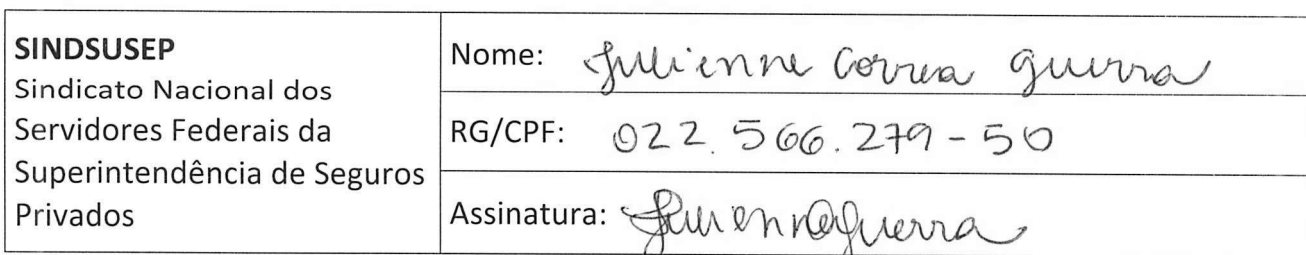 SINDSUSEP
Sindicato Nacional dos
Servidores Federais da
Superintendência de Seguros
Privados
Nome: Jullienne Correa Guerra
RG/CPF: 022.566.279-50
Assinatura: